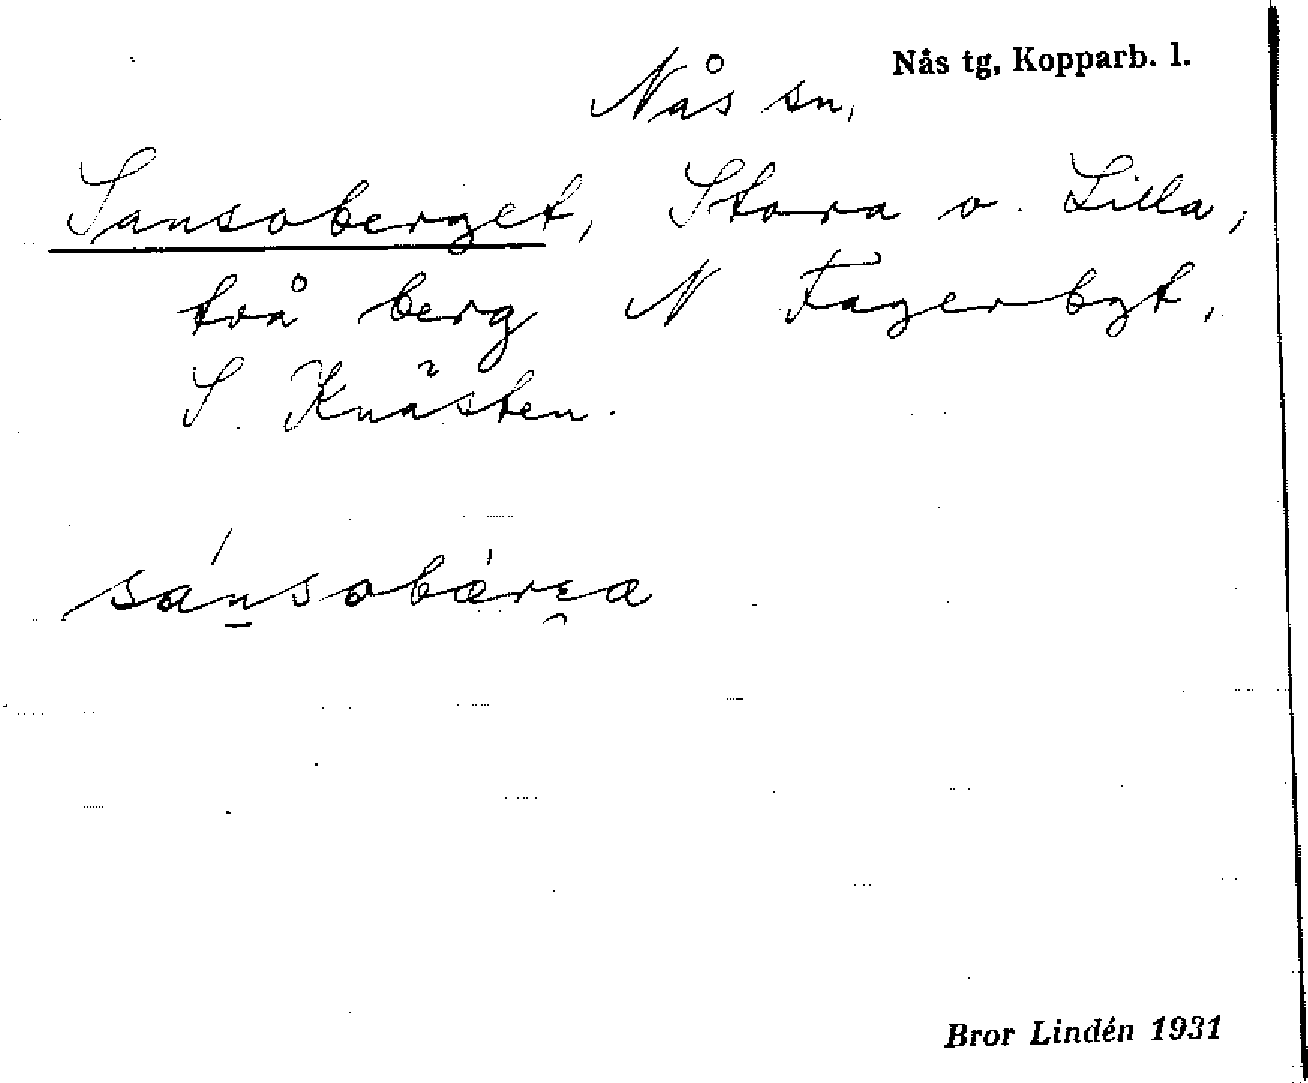 Nås tg, Kopparb. l.
Nås sn,
Sansoberget, Stora o. Lilla,
två berg N Fagerbgt,
S Knästen.
sánsobärɛa
Bror Lindén 1931